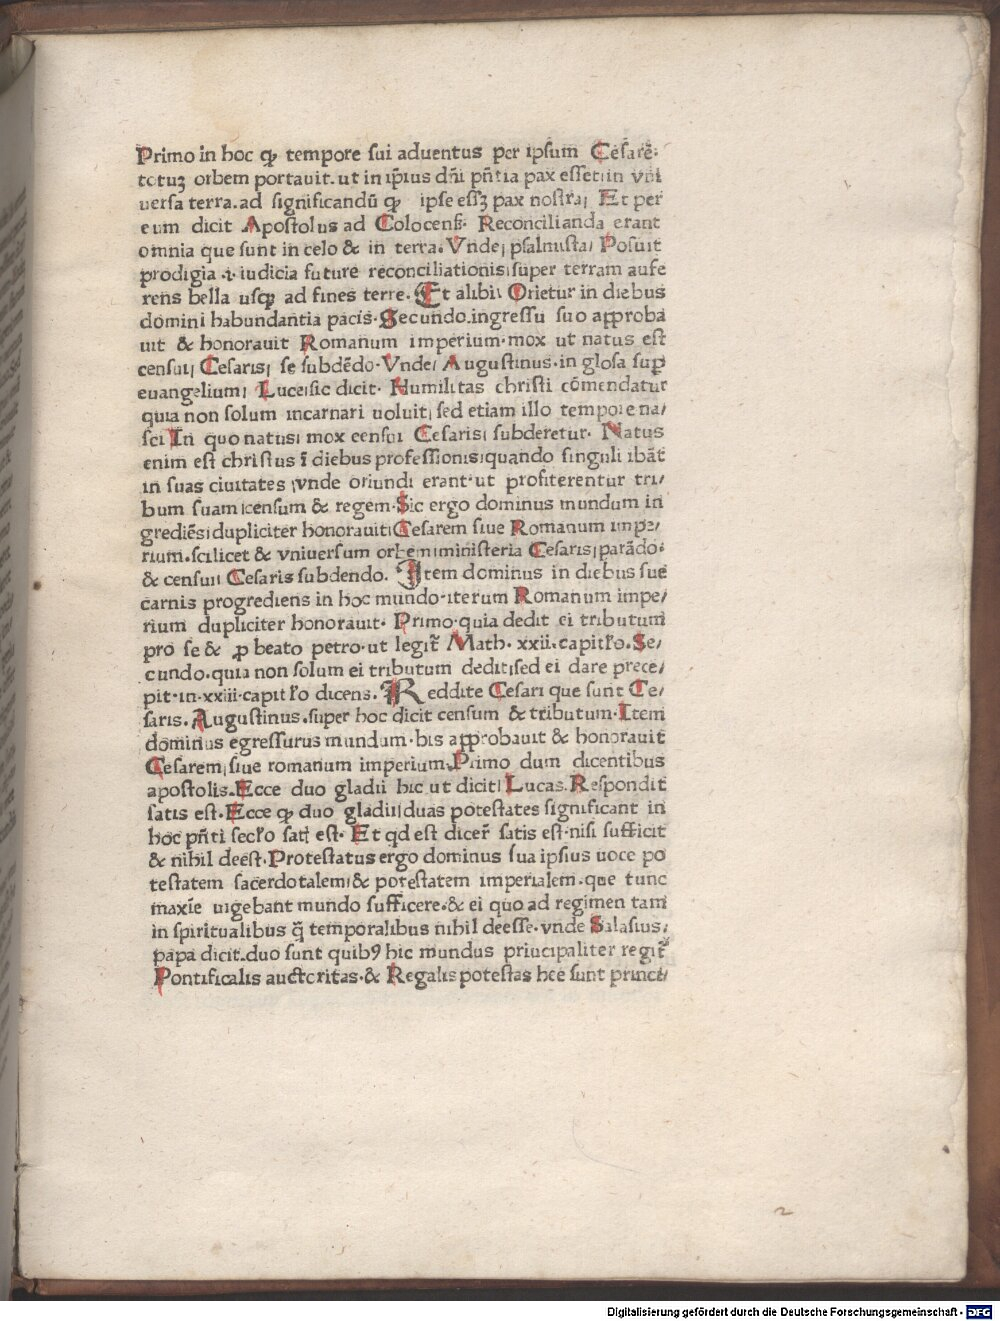 Primo in hoc ꝙ tempore sui aduentus per ipsum Cesarē.
totuʒ orbem portauit. ut in ip̄ius dn̄i pn̄tia pax esset in vni
uersa terra. ad significandū ꝙ ipse essʒ pax nostra; Et per
eum dicit Apostolus ad Colocens̄. Reconcilianda erant
omnia que sunt in celo & in terra. Vnde; psalmusta/ Posuit
prodigia .i. iudicia future reconciliationis; super terram aufe
rens bella usqꝫ ad fines terre. Et alibi; Orietur in diebus
domini habundantia pacis. Secundo. ingressu suo approba
uit & honorauit Romanum imperium. mox ut natus est
censui; Cesaris; se subdēdo. Vnde/ Augustinus. in glosa suꝑ
euangelium; Luce; sic dicit. Humilitas christi cōmendatur
quia non solum incarnari uoluit; sed etiam illo tempore na/
sci In quo natus; mox censui Cesaris; subderetur. Natus
enim est christus ī diebus professionis; quando singuli ibāt
in suas ciuitates ;vnde oriundi erant. ut profiterentur tri/
bum suam; censum & regem. Sic ergo dominus mundum in
grediēs; dupliciter honorauit; Cesarem siue Romanum impe/
rium. scilicet & vniuersum orbem; ministeria Cesaris; parādo.
& censui; Cesaris subdendo. Item dominus in diebus sue
carnis progrediens in hoc mundo. iterum Romanum impe/
rium dupliciter honorauit. Primo. quia dedit ei tributum
pro se & ꝓ beato petro. ut legit̄ Math. xxii. capitl̄o. Se/
cundo. quia non solum ei tributum dedit; sed ei dare prece/
pit. in. xxiii. capitl̄o dicens. Reddite Cesari que sunt Ce/
saris. Augustinus. super hoc dicit censum & tributum. Item
dominus egressurus mundum. bis approbauit & honorauit
Cesarem; siue romanum imperium. Primo dum dicentibus
apostolis. Ecce duo gladii hic ut dicit; Lucas. Respondit
satis est. Ecce ꝙ duo gladii; duas potestates significant in
hoc pn̄ti secl̄o sat; est. Et qd est dicer̄ satis est. nisi sufficit
& nihil deest. Protestatus ergo dominus sua ipsius uoce po
testatem sacerdotalem; & potestatem imperialem. que tunc
maxīe uigebant mundo sufficere. & ei quo ad regimen tam
in spiritualibus q̄ temporalibus nihil deesse. vnde Salasius;
papa dicit. duo sunt quibꝰ hic mundus priucipaliter regit̄
Pontificalis auctoritas. & Regalis potestas hee sunt princi/
2
Digitalisierung gefördert durch die Deutsche Forschungsgemeinschaft - DFG